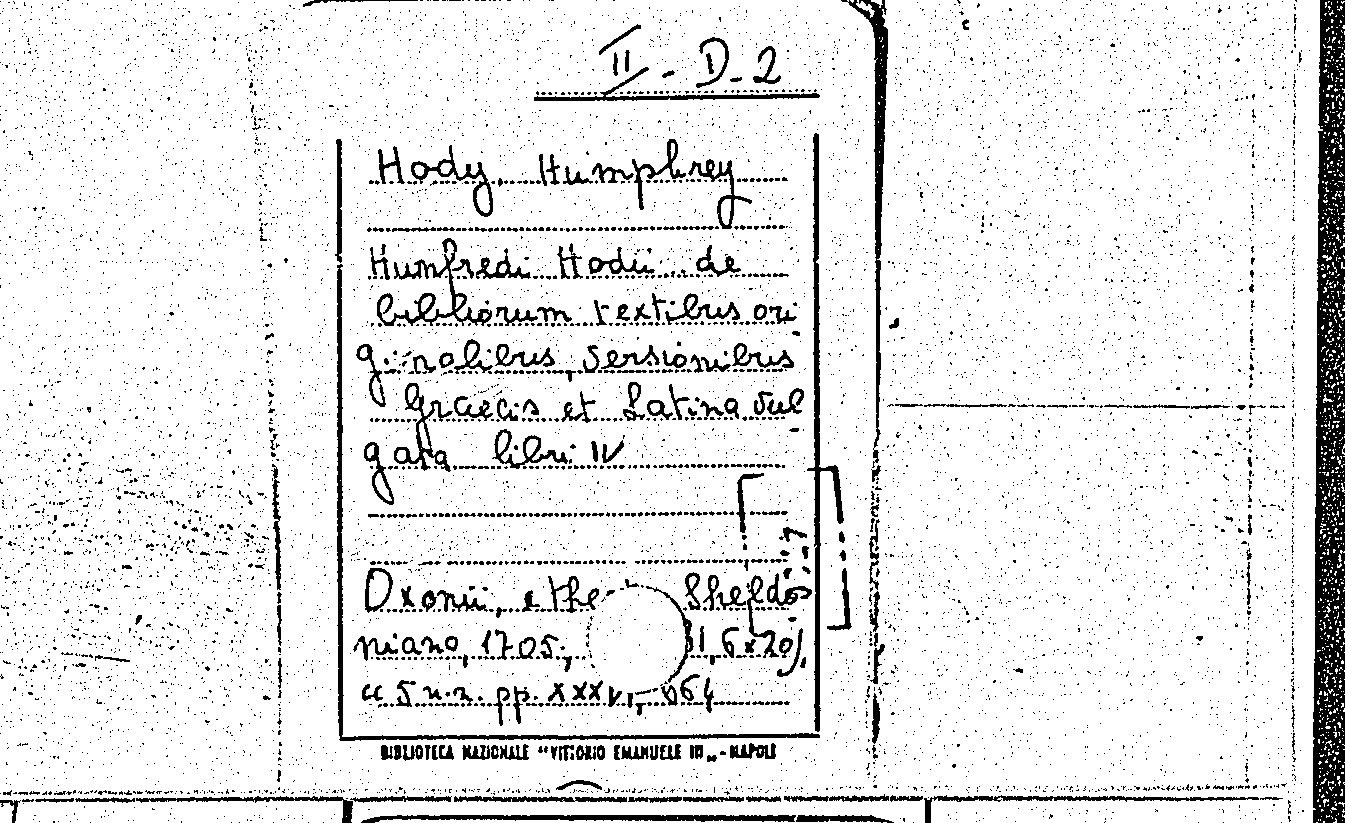 II - D - 2
Hody, Humphrey
Humfredi Hodii de
bibliorum textibus ori
ginalibus, versionibus
Graecis et Latina vul
gata libri IV
Oxonii, e the Sheldo
niano, 1705,
cc 5 n.n. pp. XXXVI, 664
BIBLIOTECA NAZIONALE "VITTORIO EMANUELE III„ - NAPOLI